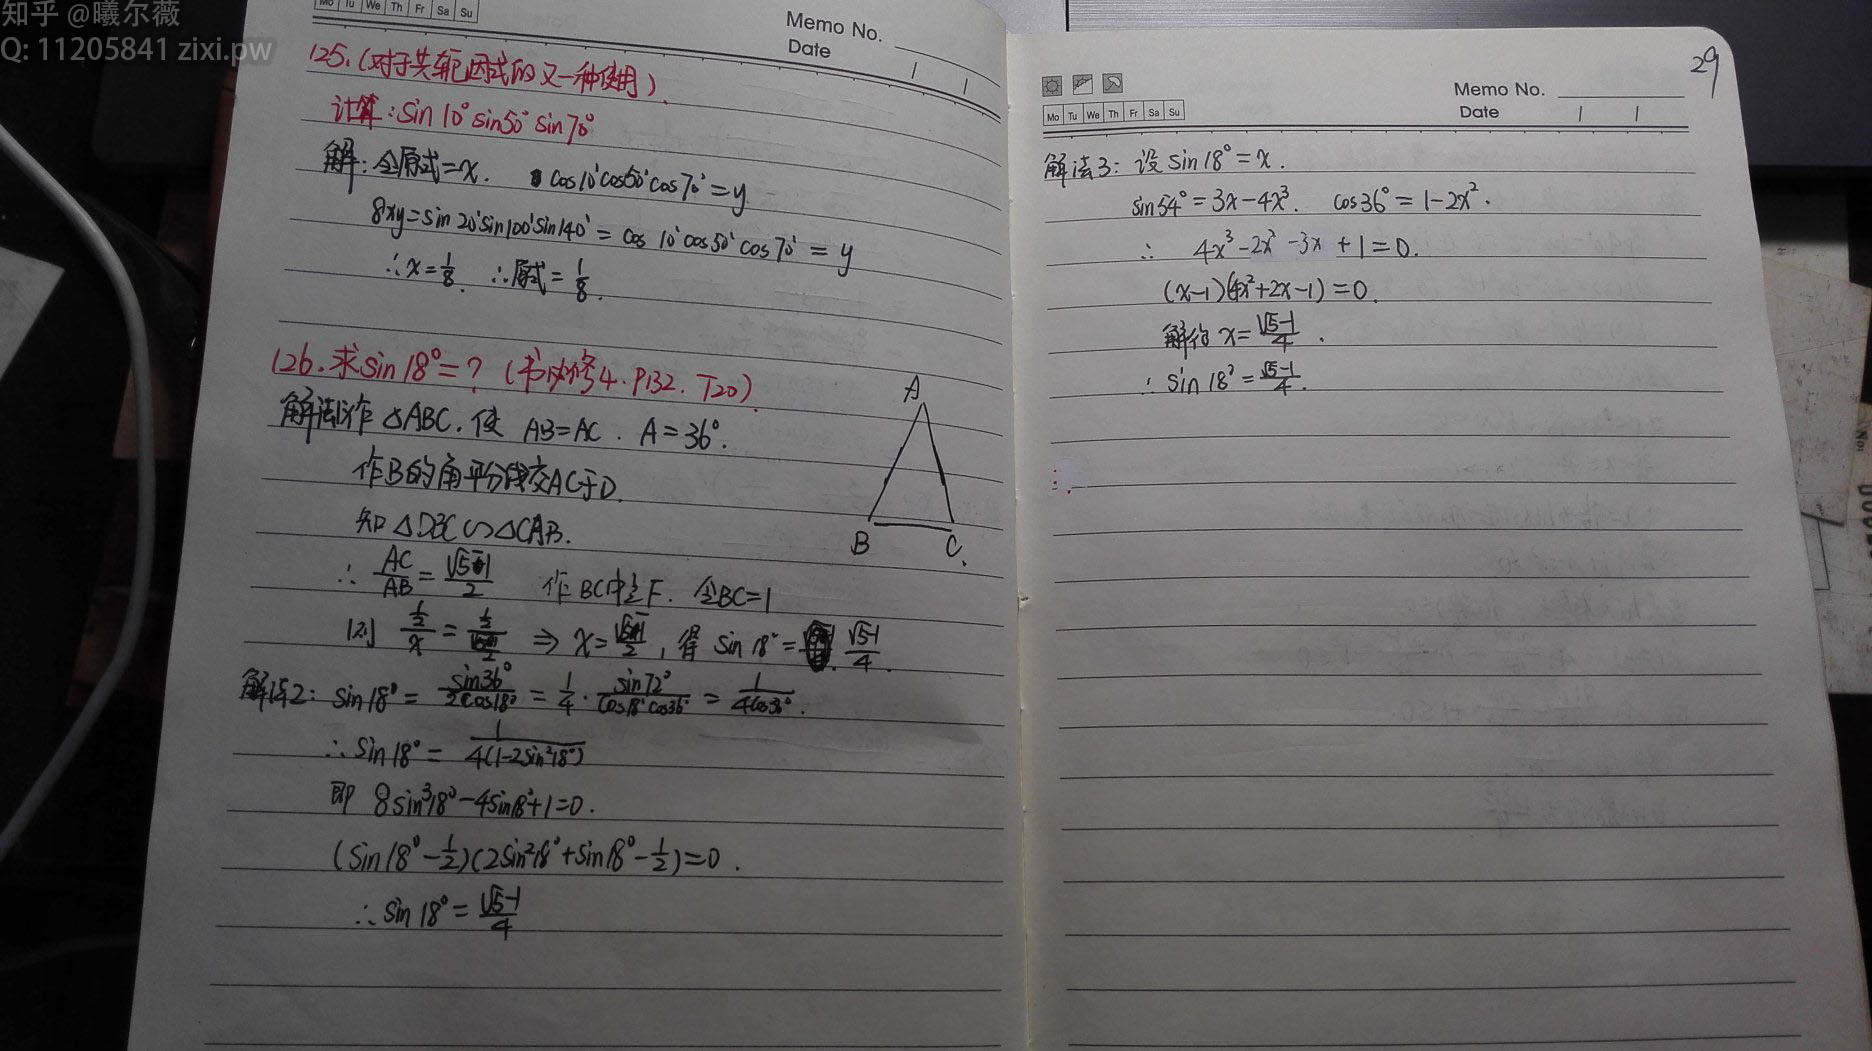 知乎 @曦尔薇
Q: 11205841 zixi.pw
Mo Tu We Th Fr Sa Su
Memo No.
Date / /
125.(对于共轭因式的又一种使用).
计算:sin10°sin50°sin70°
解:令原式=x. cos10°cos50°cos70°=y
8xy=sin20°sin100°sin140°=cos10°cos50°cos70°=y
∴x=1/8. ∴原式=1/8.
126.求sin18°=?(书必修4.P132.T20).
解法1:作△ABC.使 AB=AC. A=36°.
作B的角平分线交AC于D.
知△DBC∽△CAB.
∴ AC/AB=(√5-1)/2 作BC中点F. 令BC=1
则 (1/2)/x = ⇒ x= , 得 sin18°= (√5-1)/4.
A
B
C
解法2: sin18°= sin36°/(2cos18°) = 1/4 · sin72°/(cos18°cos36°) = 1/(4cos36°).
∴sin18°= 1/(4(1-2sin²18°))
即 8sin³18°-4sin18°+1=0.
(sin18°-1/2)(2sin²18°+sin18°-1/2)=0.
∴sin18°=(√5-1)/4
29
Mo Tu We Th Fr Sa Su
Memo No.
Date / /
解法3: 设sin18°=x.
sin54°=3x-4x³. cos36°=1-2x².
∴ 4x³-2x²-3x+1=0.
(x-1)(4x²+2x-1)=0.
解得 x=(√5-1)/4.
∴ sin18°=(√5-1)/4.